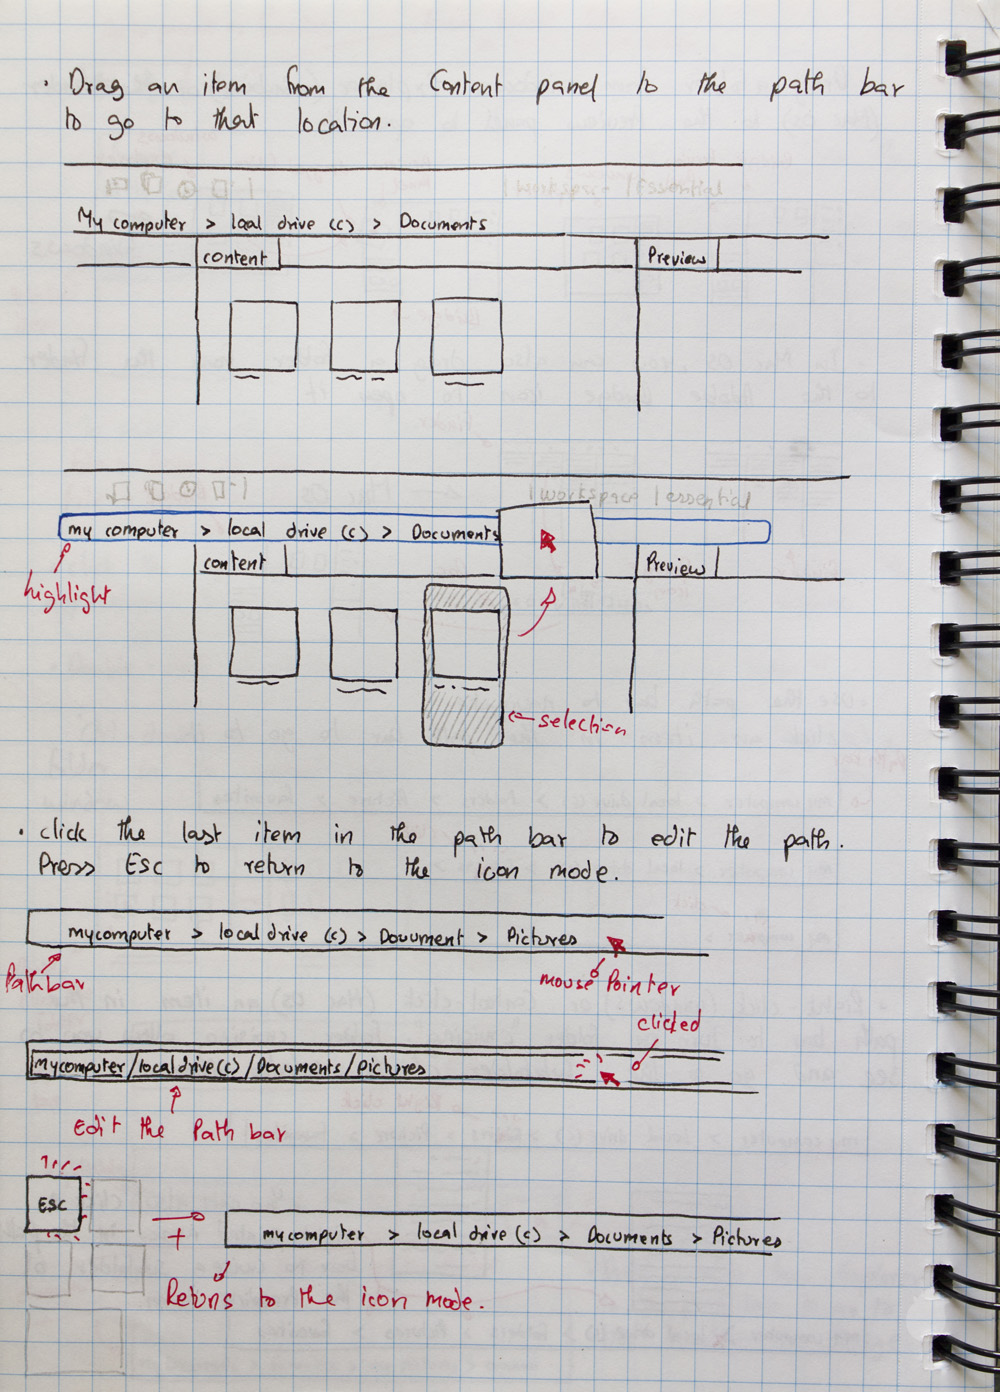 · Drag an item from the Content panel to the path bar
to go to that location.
My computer > local drive (c) > Documents
content
Preview
my computer > local drive (c) > Documents
highlight
content
Preview
selection
· click the last item in the path bar to edit the path.
Press ESC to return to the icon mode.
mycomputer > local drive (c) > Document > Pictures
Path bar
mouse Pointer
clicked
mycomputer/local drive(c)/Documents/Pictures
Edit the Path bar
ESC
+
mycomputer > local drive (c) > Documents > Pictures
Retuns to the icon mode.